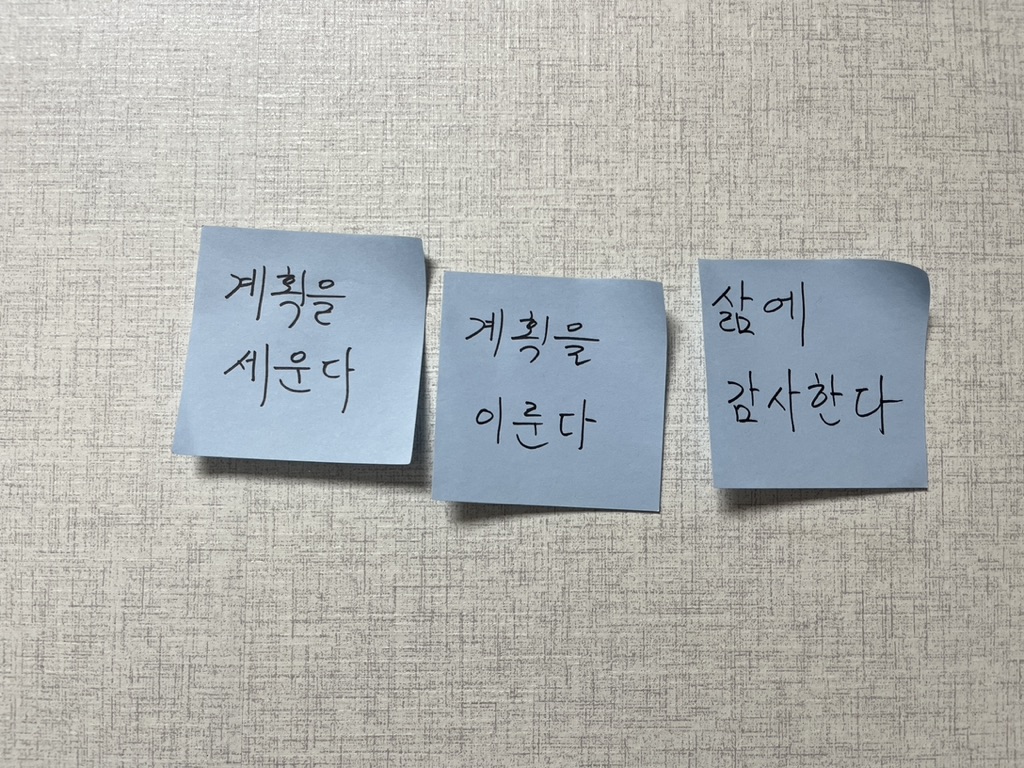 계획을
세운다
계획을
이룬다
삶에
감사한다